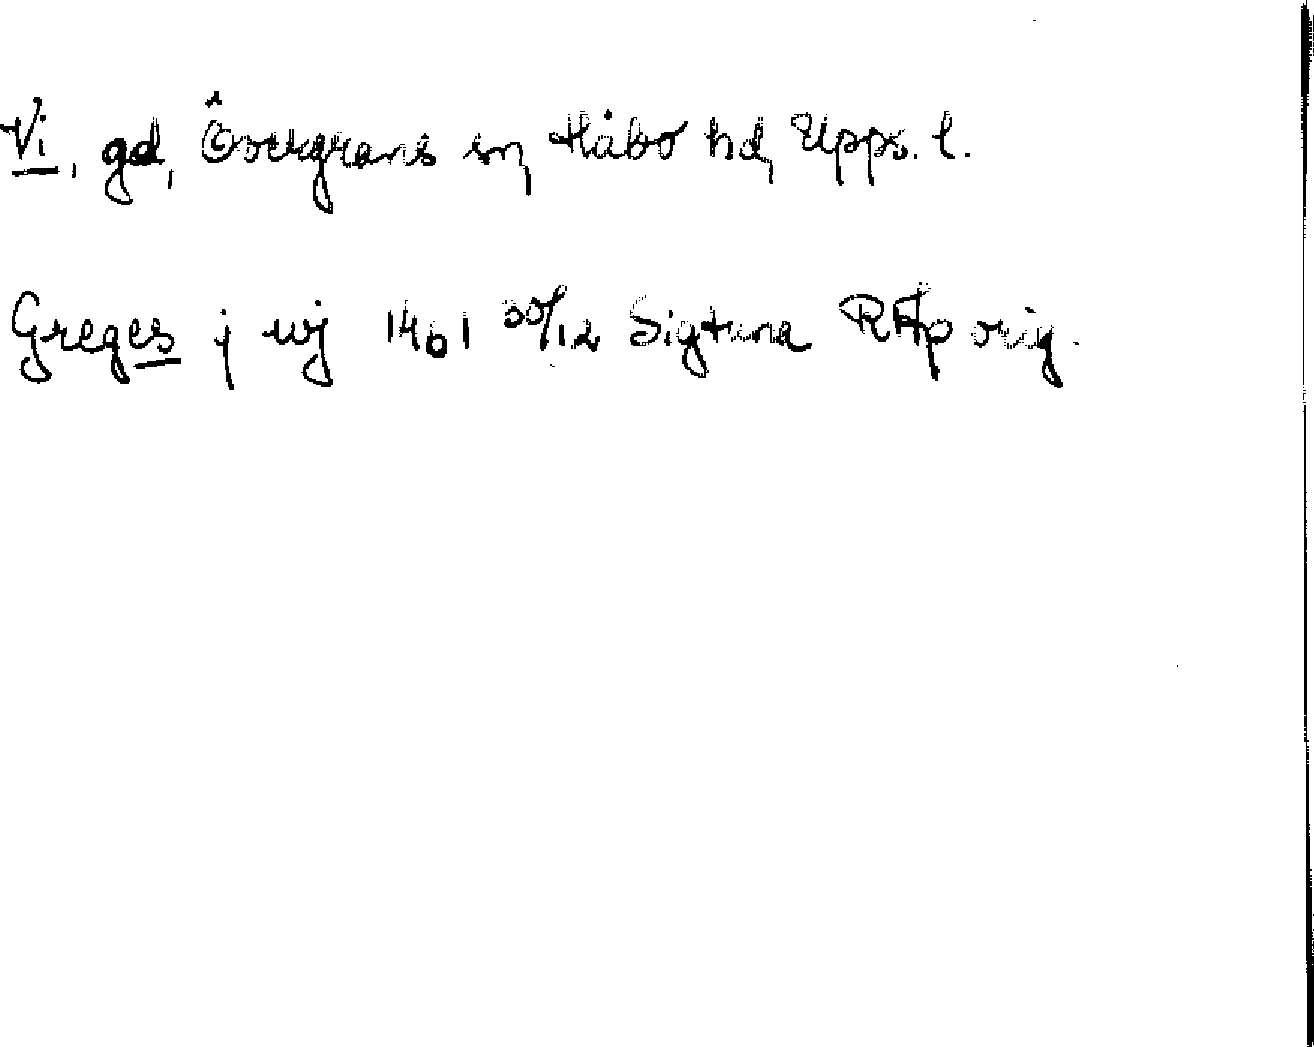 Vi, gd, Övergrans sn, Håbo hd, Upps. l.
Greges j wj 1461 30/12 Sigtuna RAp orig.